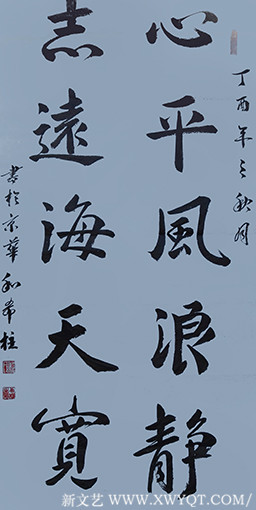 丁酉年之秋月
心平風浪静
志遠海天寬
書於京華 和希柱
新文艺 WWW.XWYQT.COM/